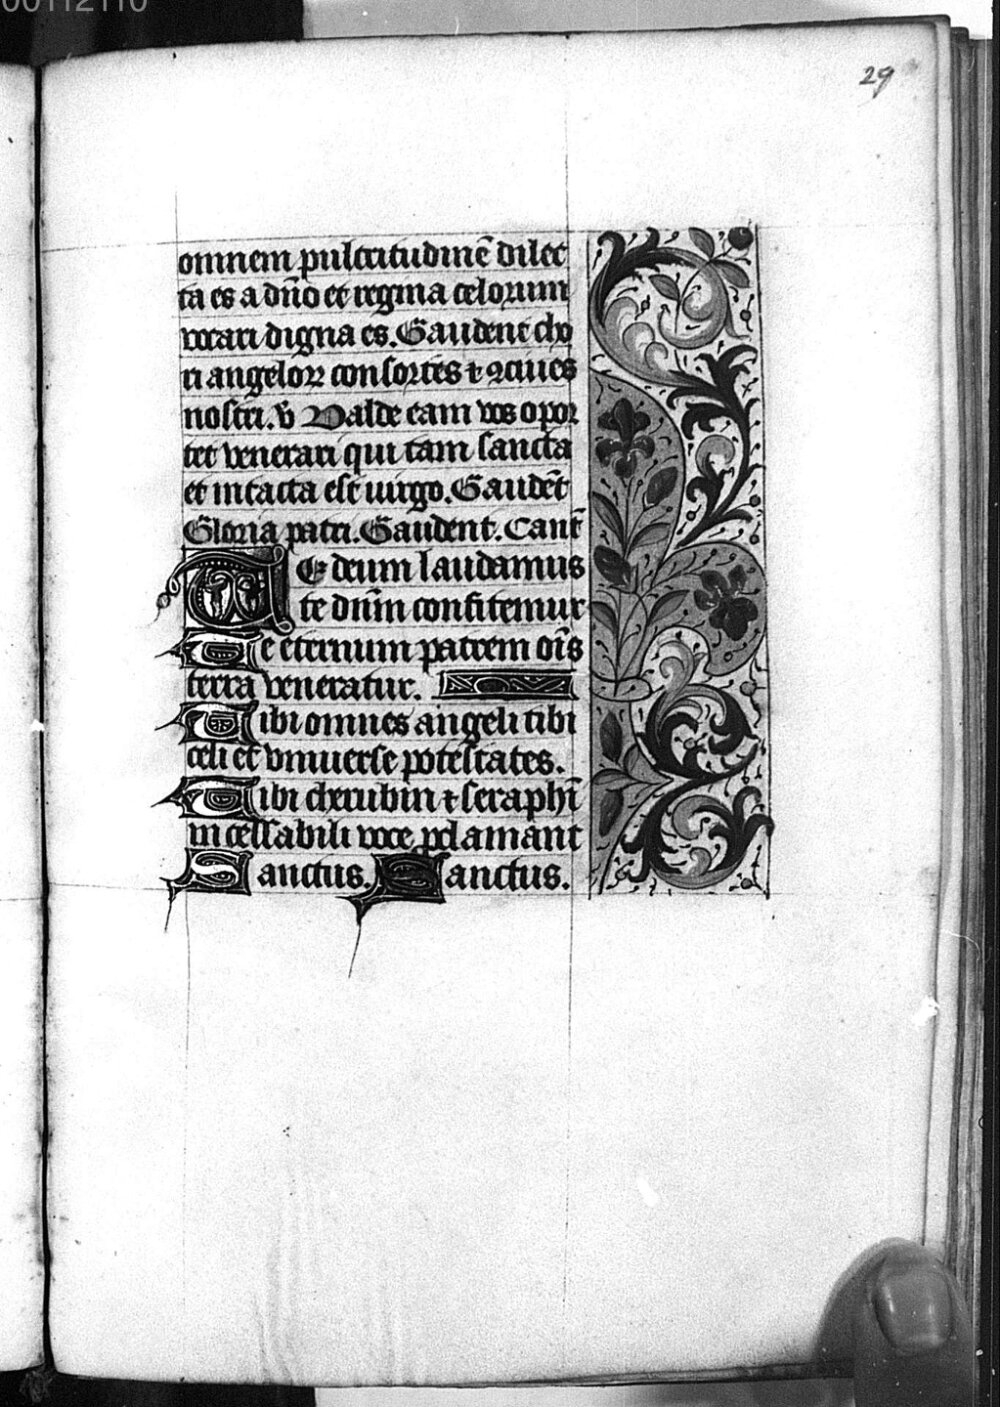 00112110
29
omnem pulcritudinē dilec
ta es a dño et regina celorum
vocari digna es. Gaudent cho
ri angeloꝝ consortes ⁊ ꝯciues
nostri. v̄ Valde eam vos opor
tet venerari qui tam sancta
et intacta est uirgo. Gaudēt
Gloria patri. Gaudent. Cant̄
Te deum laudamus
te dnm̄ confitemur
Te eternum patrem oīs
terra veneratur.
Tibi omnes angeli tibi
celi et vniuerse potestates.
Tibi cherubin ⁊ seraphī
incessabili voce ꝓclamant
Sanctus. Sanctus.